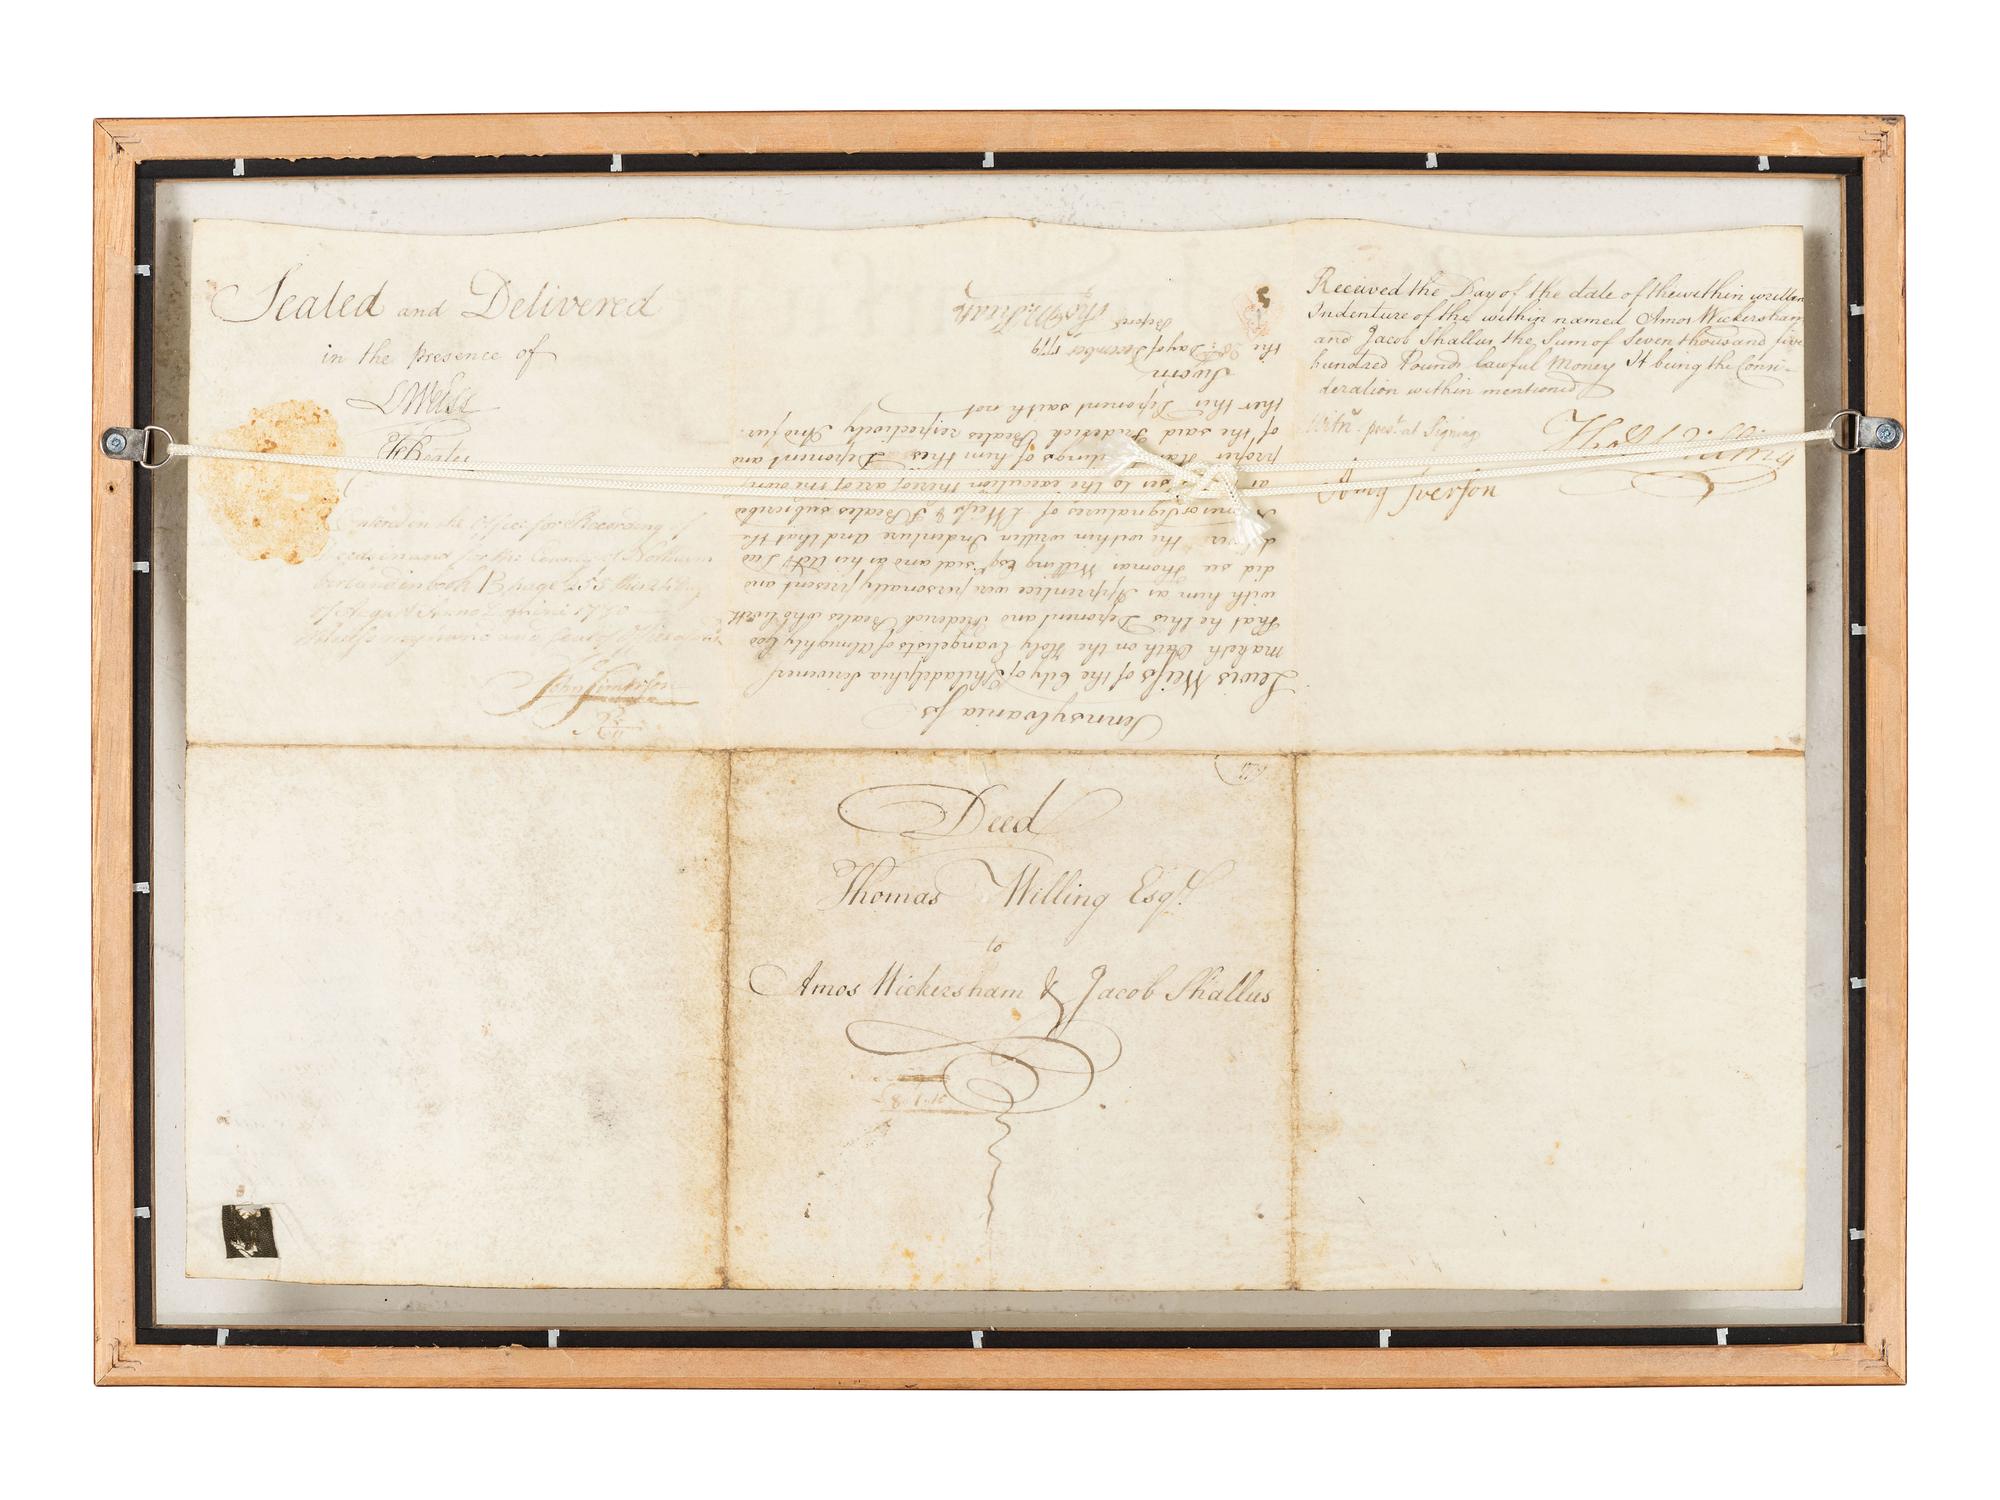 Sealed and Delivered
in the presence of
L Weiss
F Beates
Entered in the Office for Recording of
Deeds in and for the County of Northum
berland in book B page 255 this 24 Day
of August Anno Domini 1780
Witness my hand and Seal of Office
John Simpson
Pennsylvania ss
Lewis Weiss of the City of Philadelphia Scrivener
maketh Oath on the Holy Evangelists of Almighty God
that he this Deponent and Frederick Beates who wrott
with him as Apprentice were personally present and
did see Thomas Willing Esqr. seal and as his Act & Deed
the within written Indenture and that the
Signatures of L Weiss & F Beates subscribed
to the execution thereof are of the own
proper Hand of him this Deponent and
of the said Frederick Beates respectively And fur:
ther this Deponent saith not
Sworn
the 28th Day of December 1779
Before
Tho M:Kean
Received the Day of the date of the within written
Indenture of the within named Amos Wickersham
and Jacob Shallus the Sum of Seven thousand five
hundred Pounds lawful Money It being the Consi-
deration within mentioned
Witn. prest. at Signing
Thos Willing
Iverson
Deed
Thomas Willing Esqr.
to
Amos Wickersham & Jacob Shallus